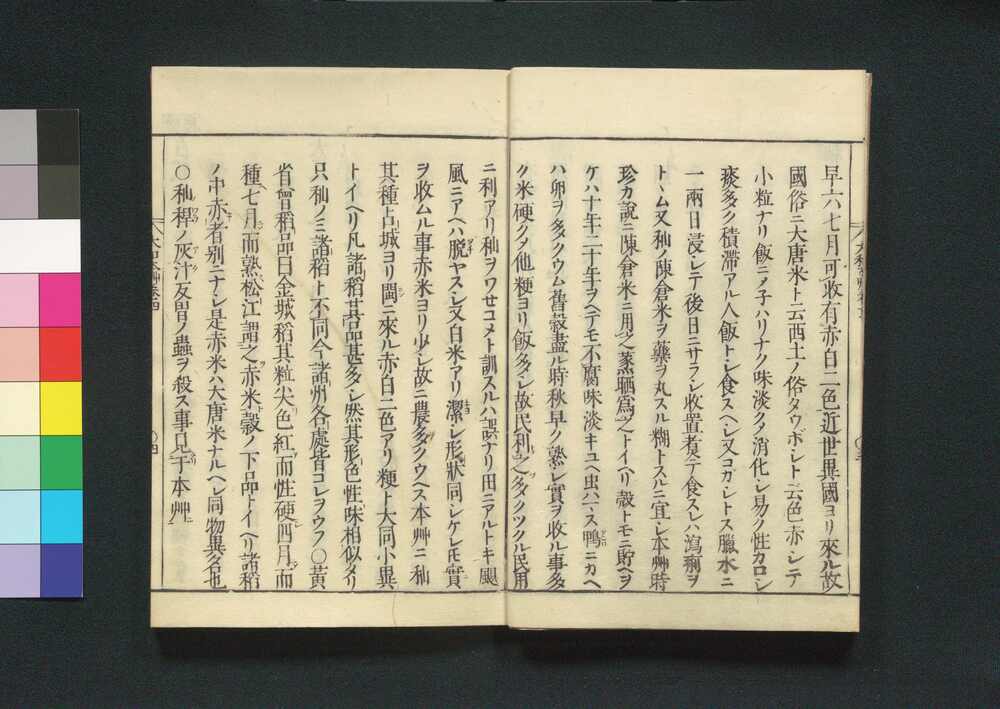 早六七月可收有赤白二色近世異國ヨリ來ル故
國俗ニ大唐米ト云西土ノ俗タウボシト云色赤シテ
小粒ナリ飯ニノ子ハリナク味淡ク消化シ易ク性カロシ
痰多ク積滯アル人飯トシ食スヘシ又コガシトス臘水ニ
一兩日浸シテ後日ニサラシ收置煮テ食スレハ瀉痢ヲ
トヽム又秈ノ陳倉米ヲ藥ヲ丸スル糊トスルニ宜シ本艸時
珍カ說ニ陳倉米ニ用之蒸晒爲之トイヘリ殼トモニ貯ヘヲ
ケハ十年二十年ヲヘテモ不腐味淡キユヘ虫ハマス鴨ニカヘ
ハ卵ヲ多クウム舊穀盡ル時秋早ク熟シ實ヲ收ル事多
ク米硬クメ他粳ヨリ飯多シ故民利之多クツクル民用
ニ利アリ秈ヲワセコメト訓スルハ誤ナリ田ニアルトキ颶
風ニアヘハ脫ヤスシ又白米アリ潔シ形狀同シケレ𪜈實
ヲ收ムル事赤米ヨリ少シ故ニ農多クウヘス本艸ニ秈
其種占城ヨリ閩ニ來ル赤白二色アリ粳ト大同小異
トイヘリ凡諸稻其品甚多シ然其形色性味相似タリ
只秈ノミ諸稻ト不同今諸州各處皆コレヲウフ○黃
省曾稻品曰金城稻其粒尖色紅而性硬四月而
種七月而熟松江謂之赤米穀ノ下品トイヘリ諸稻
ノ中赤者別ニナシ是赤米ハ大唐米ナルヘシ同物異名也
○秈稈ノ灰汁反胃ノ蟲ヲ殺ス事見于本艸